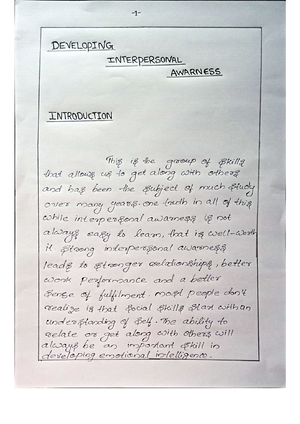 -1-
DEVELOPING
INTERPERSONAL
AWARNESS
INTRODUCTION
This is the group of skills
that allows us to get along with others
and has been the subject of much study
over many years. one truth in all of this
while interpersonal awarness is not
always easy to learn, that is well-worth
it strong interpersonal awarness
leads to stronger relationships, better
work performance and a better
sense of fulfilment. most people don't
realize is that social skills start with an
understanding of self. The ability to
relate or get along with others will
always be an important skill in
developing emotional intelligence.